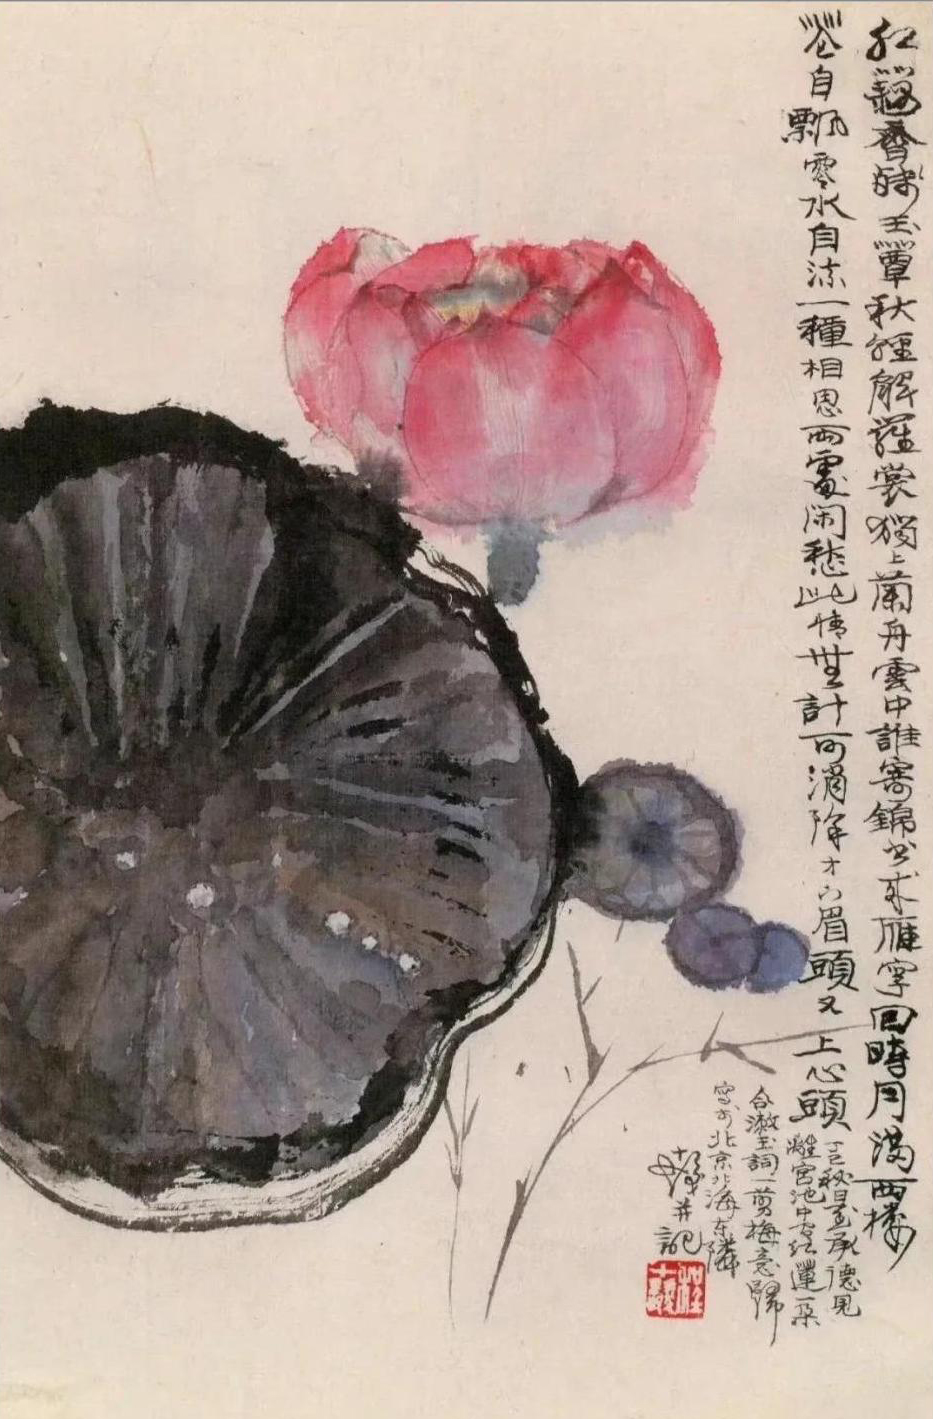 紅藕香殘玉簟秋輕解羅裳獨上蘭舟雲中誰寄錦書來雁字回時月滿西樓
花自飄零水自流一種相思兩處閑愁此情無計可消除才下眉頭又上心頭
秋日至承德見
離宮池中有紅蓮一朵
合漱玉詞一剪梅意歸
寫於北京北海东隣
十髮并記
程十髮